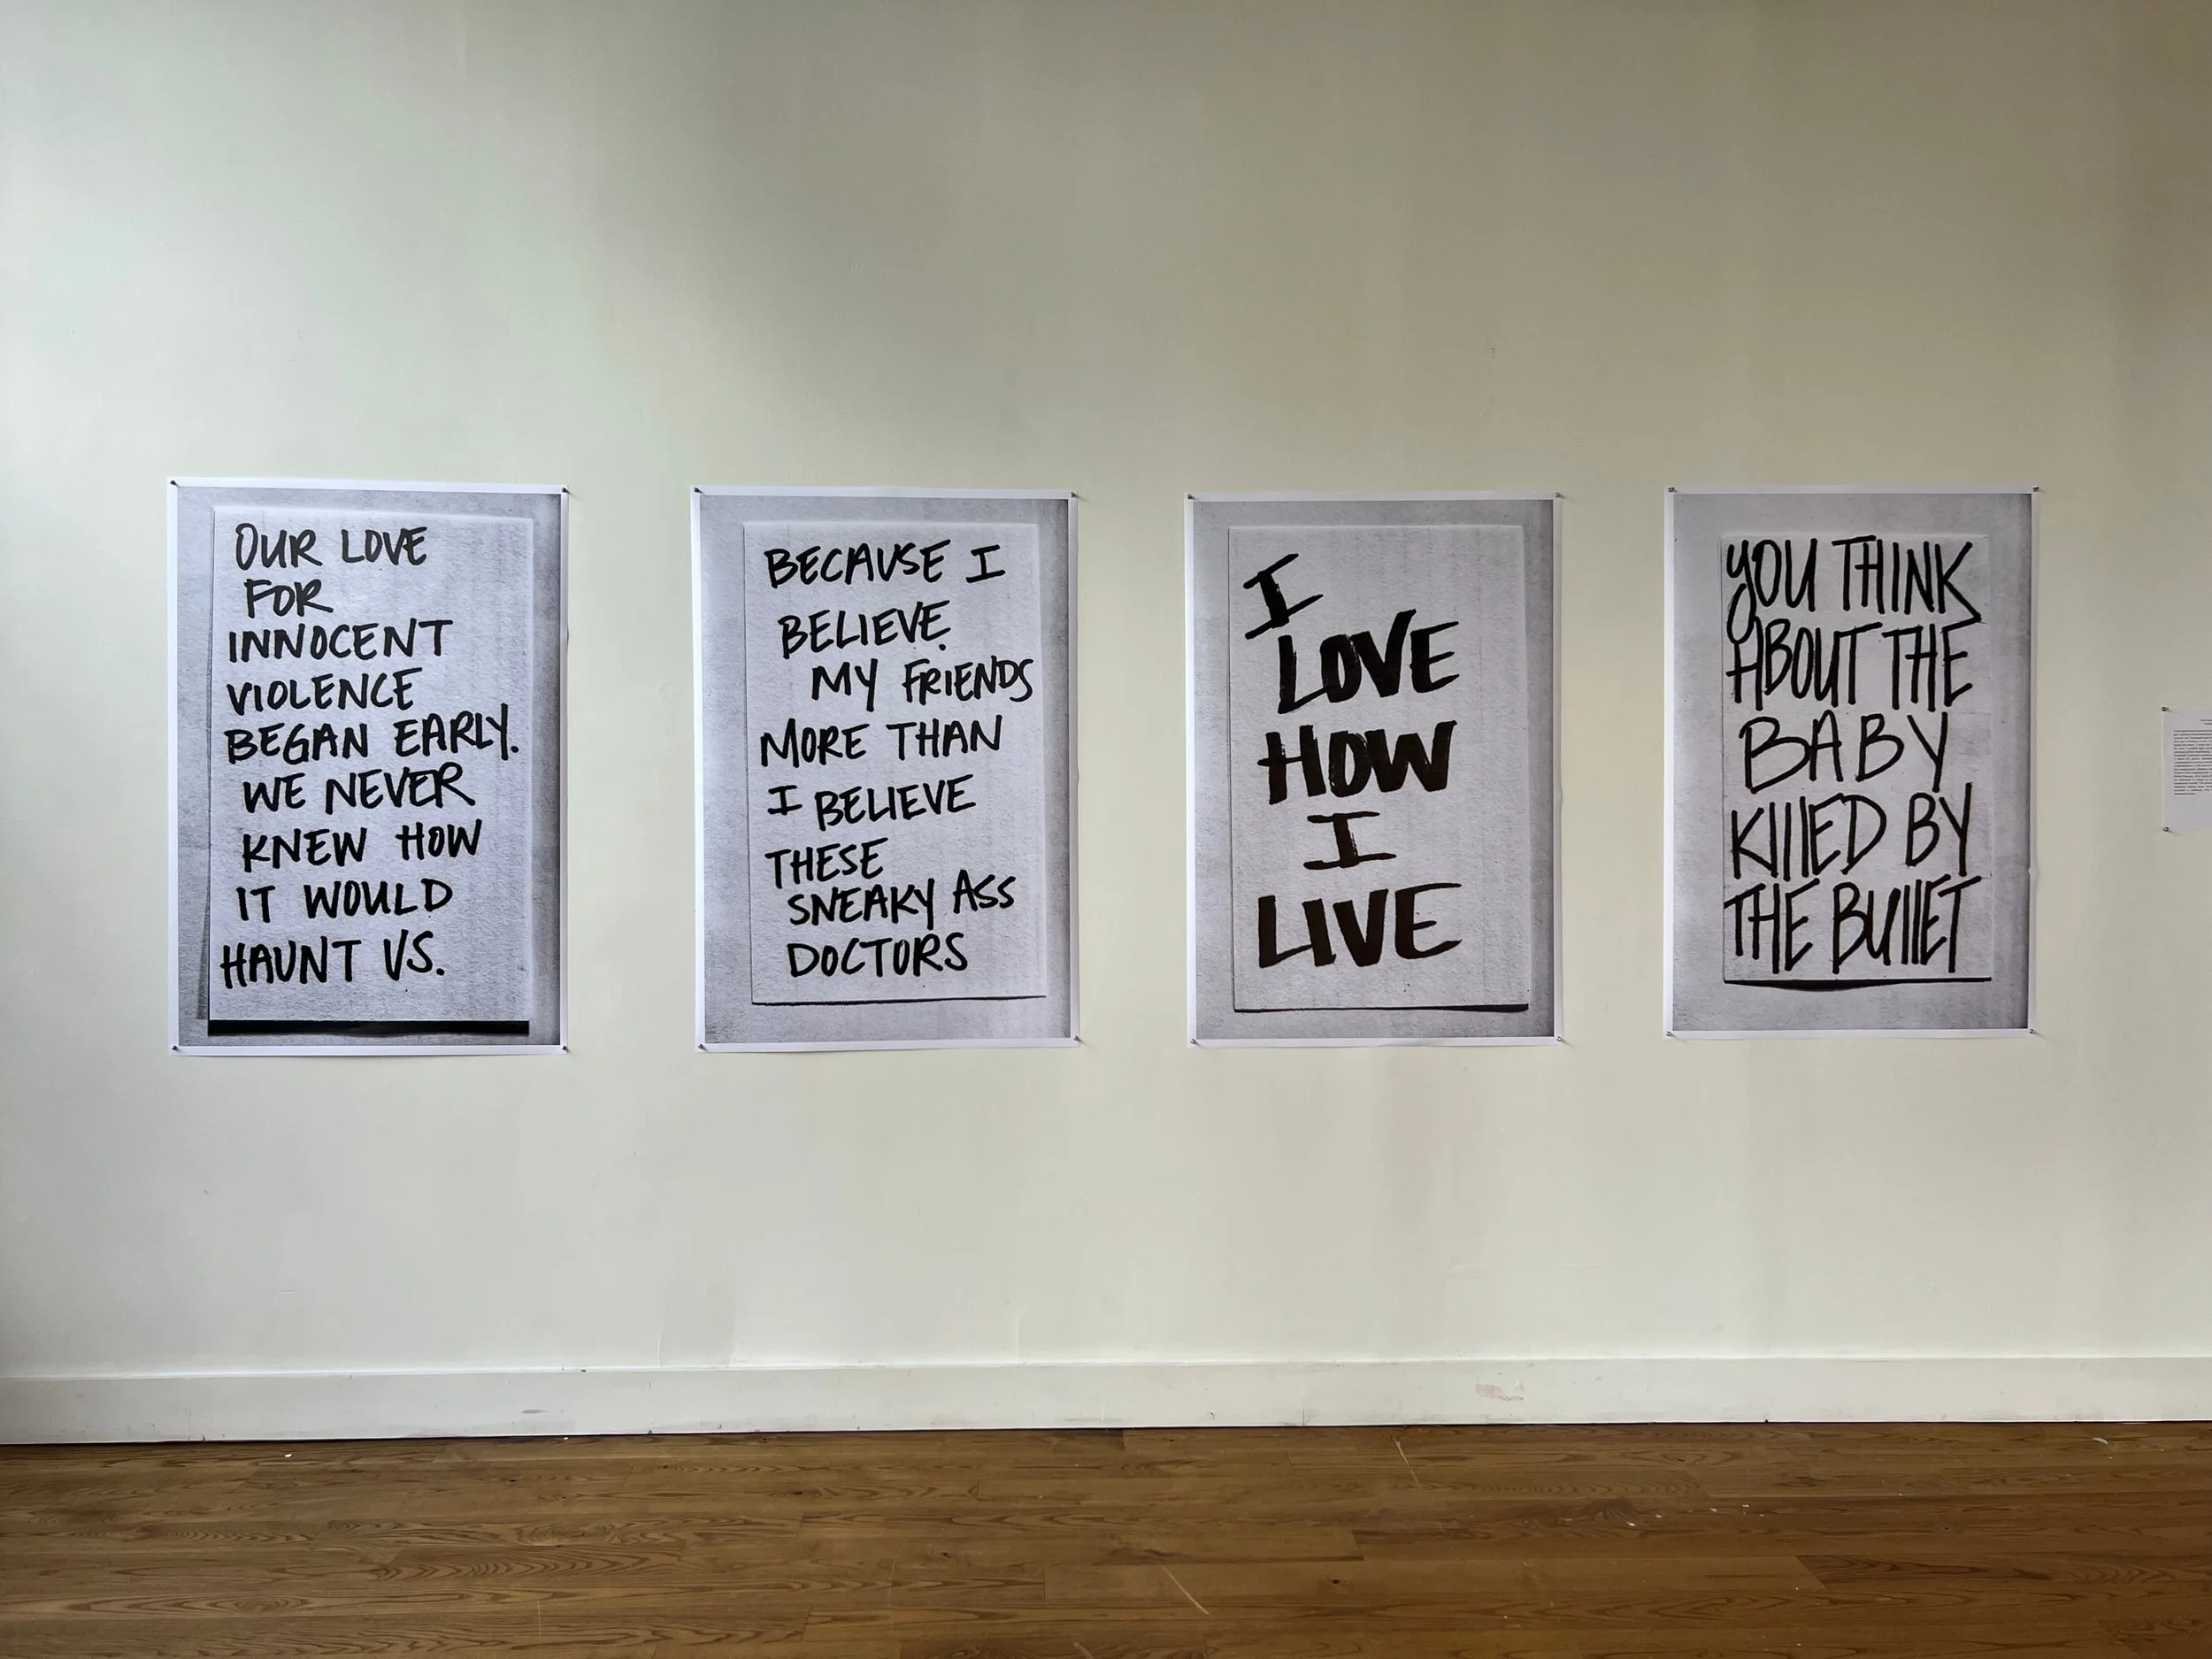 OUR LOVE
FOR
INNOCENT
VIOLENCE
BEGAN EARLY.
WE NEVER
KNEW HOW
IT WOULD
HAUNT US.
BECAUSE I
BELIEVE
MY FRIENDS
MORE THAN
I BELIEVE
THESE
SNEAKY ASS
DOCTORS
I
LOVE
HOW
I
LIVE
YOU THINK
ABOUT THE
BABY
KILLED BY
THE BULLET